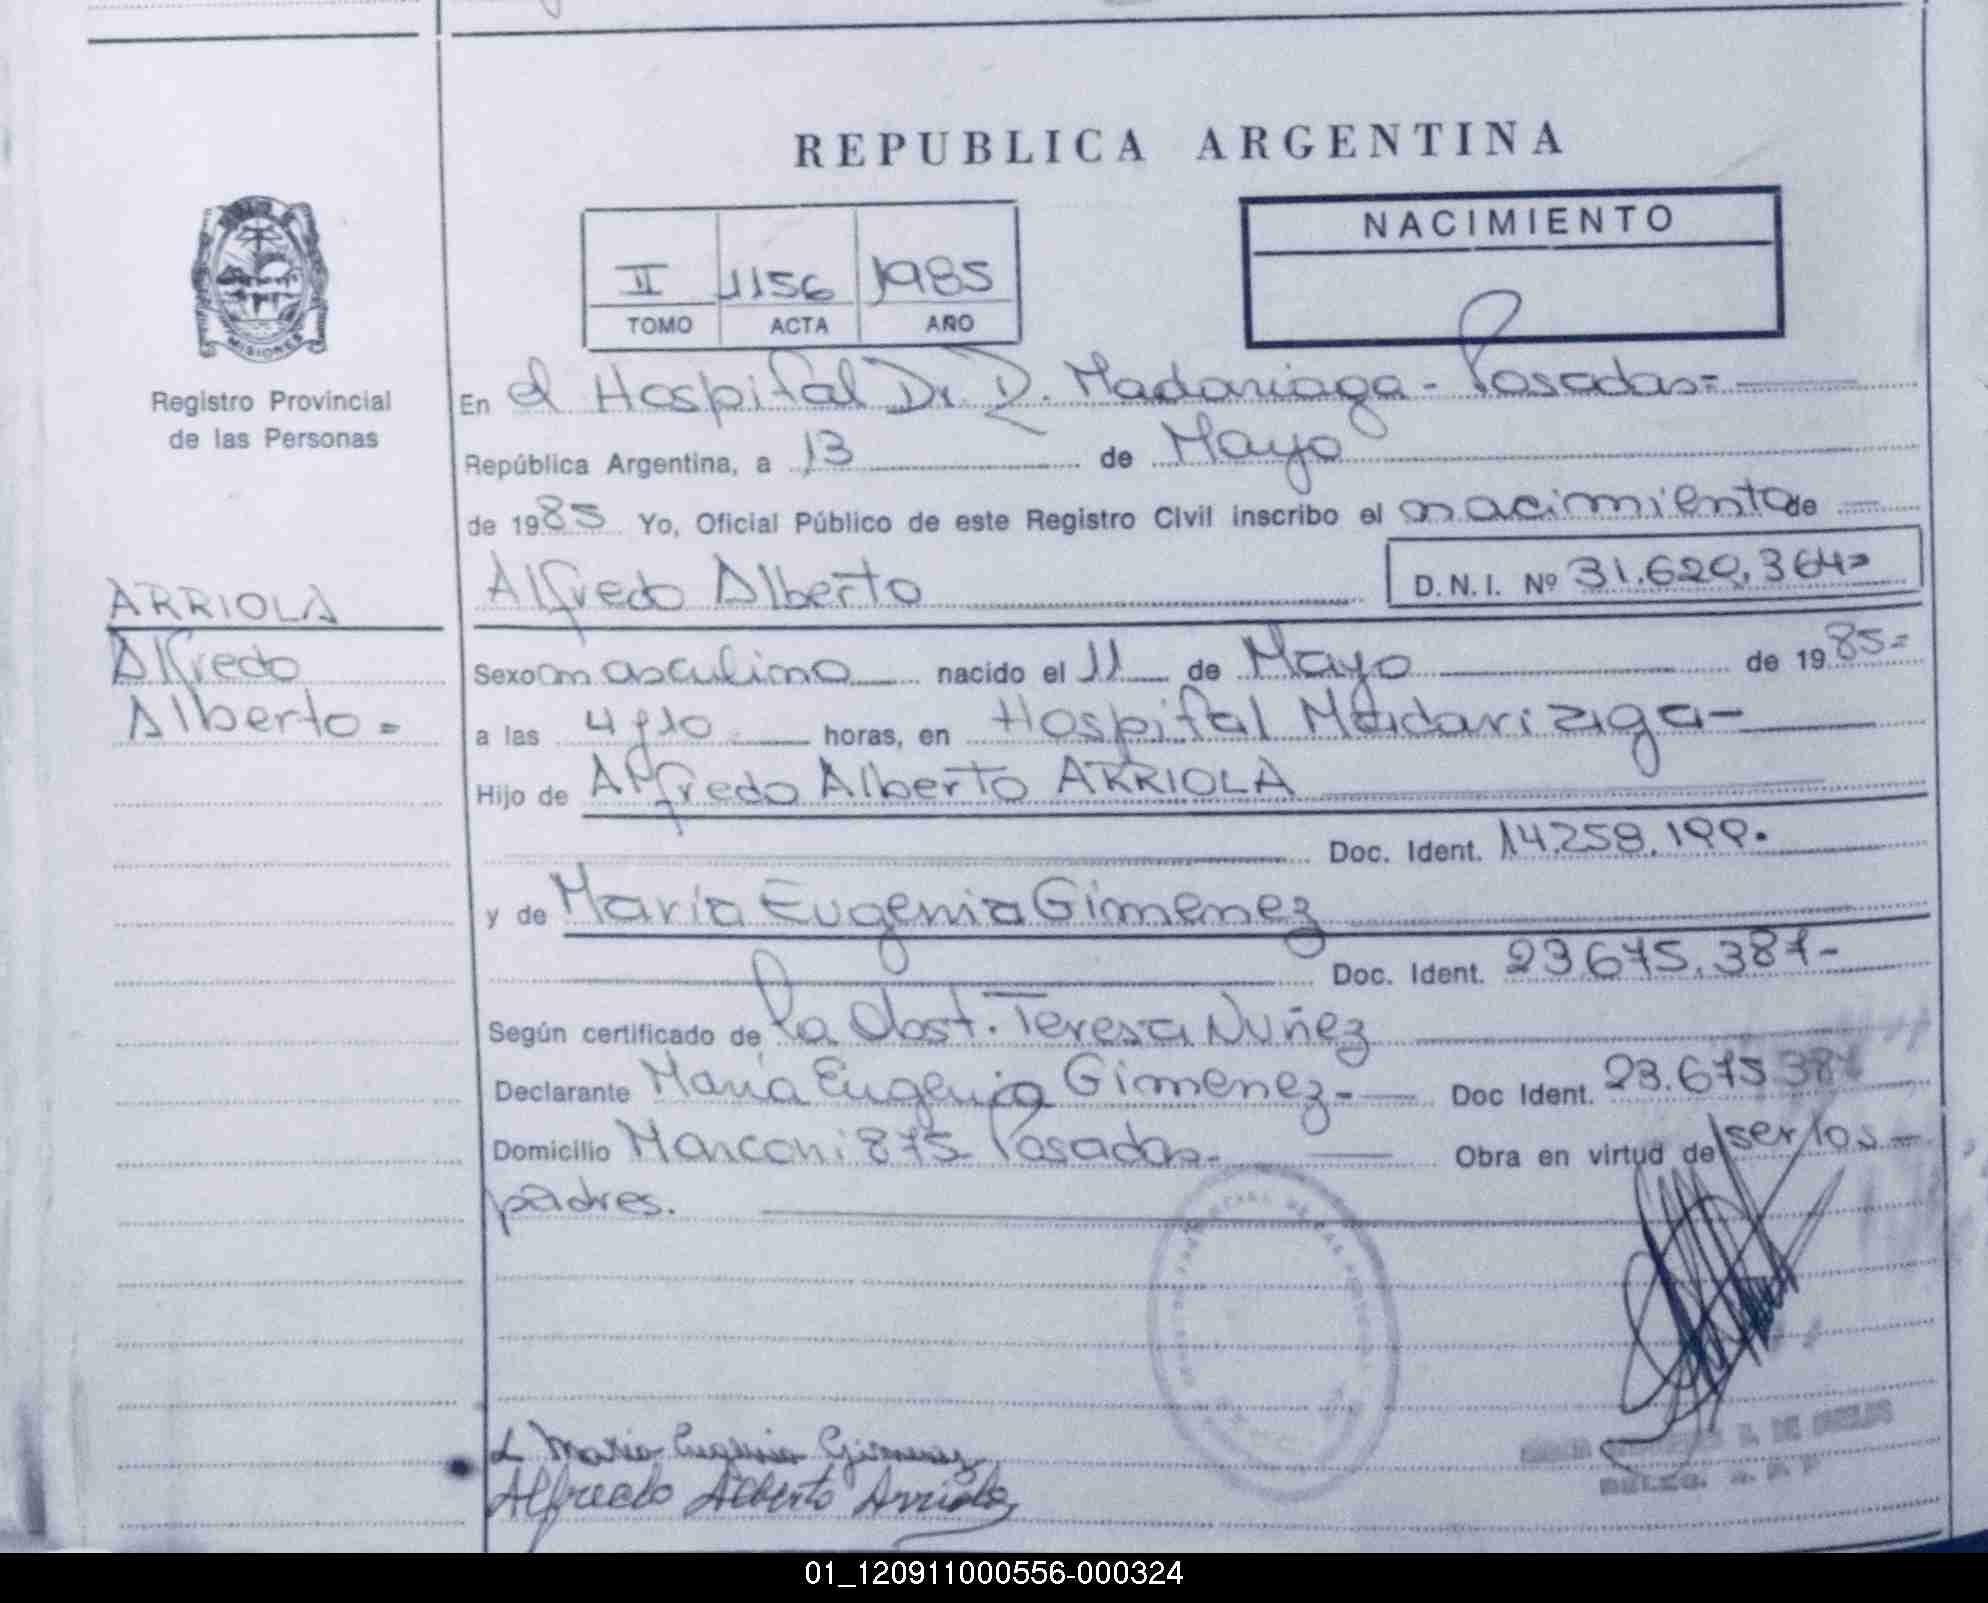 REPUBLICA ARGENTINA
NACIMIENTO
II 1156 1985
TOMO ACTA AÑO
MISIONES
Registro Provincial
de las Personas
En el Hospital Dr. R. Madariaga - Posadas=
República Argentina, a 13 de Mayo
de 1985 Yo, Oficial Público de este Registro Civil inscribo el nacimiento de
ARRIOLA
Alfredo
Alberto =
Alfredo Alberto D.N.I. Nº 31.620.364=
Sexo masculino nacido el 11 de Mayo de 1985=
a las 4 y 10 horas, en Hospital Madariaga-
Hijo de Alfredo Alberto ARRIOLA
Doc. Ident. 14.259.199.
y de María Eugenia Gimenez
Doc. Ident. 23.675.387-
Según certificado de la Obst. Teresa Nuñez
Declarante María Eugenia Gimenez- Doc Ident. 23.675.387
Domicilio Marconi 875 Posadas- Obra en virtud de ser los
padres.
Maria Eugenia Gimenez
Alfredo Alberto Arriola
01_120911000556-000324